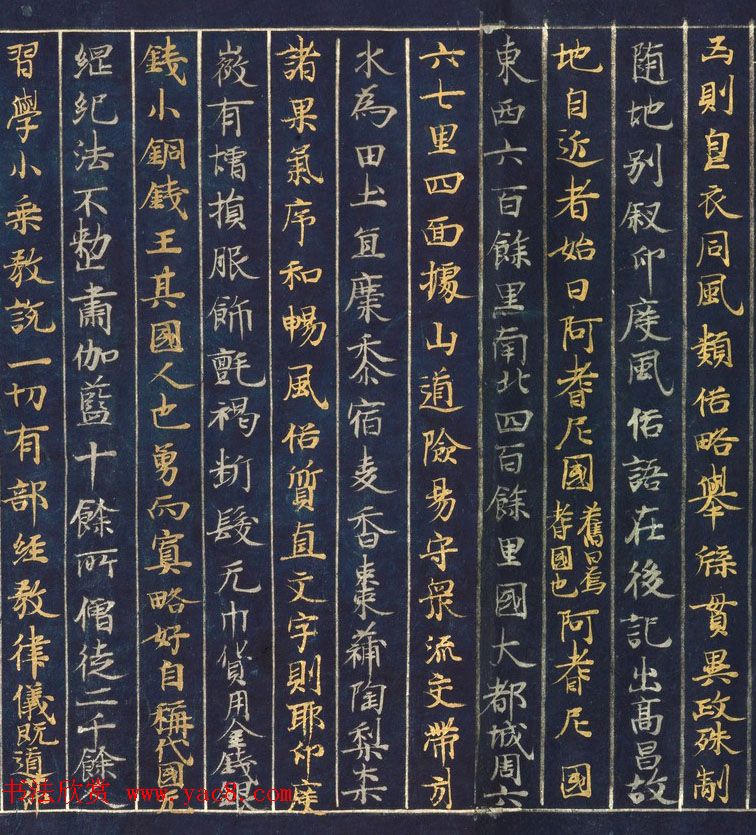 則直衣同風類俗略舉條貫異政殊制
随地別叙印度風俗語在後記出髙昌故
地自近者始曰阿耆尼國舊曰焉耆國也阿耆尼國
東西六百餘里南北四百餘里國大都城周六
六七里四面據山道險易守衆流交帶引
水為田土宜糜黍宿麦香棗蒲陶梨柰
諸果氣序和暢風俗質直文字則耶印度
微有増損服飾㲲褐断髮无巾貨用金錢銀
錢小銅錢王其國人也勇而寡略好自稱代國无
綱紀法不整肅伽藍十餘所僧徒二千餘人
習學小乗教說一切有部經教律儀既遵
书法欣赏 www.yac8.com